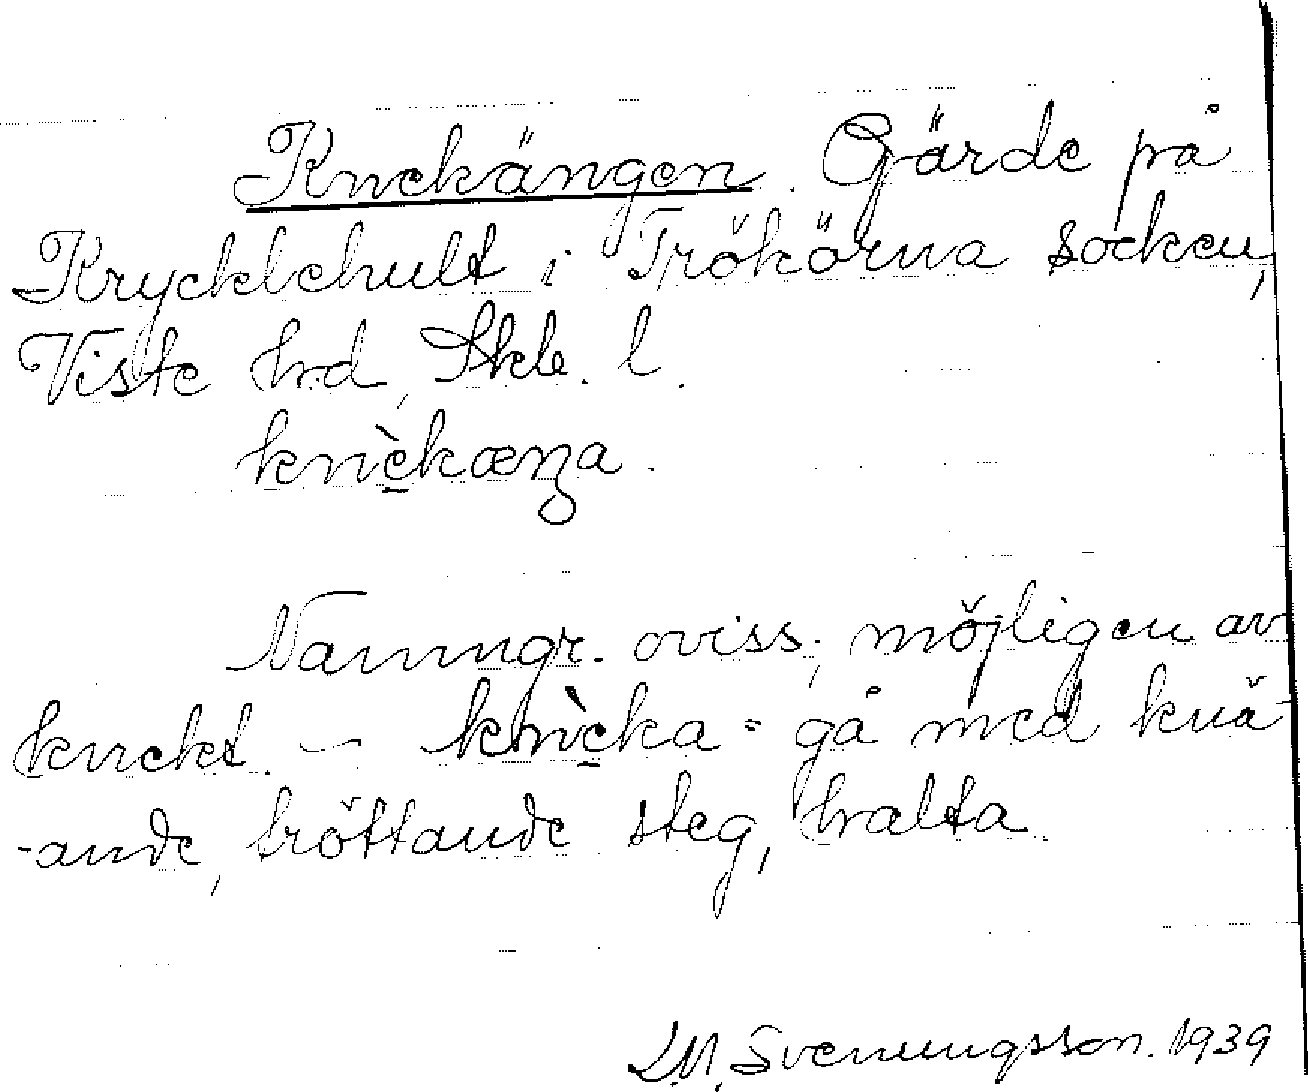 Knekängen. Gärde på
Krycklehult i Trökörna socken,
Viste hrd, Skbl. l.
knèkæŋa.
Namngr. oviss; möjligen av
knekt. – knèka = gå med knä-
-ande, tröttande steg, halta.
L.M. Svenungsson. 1939